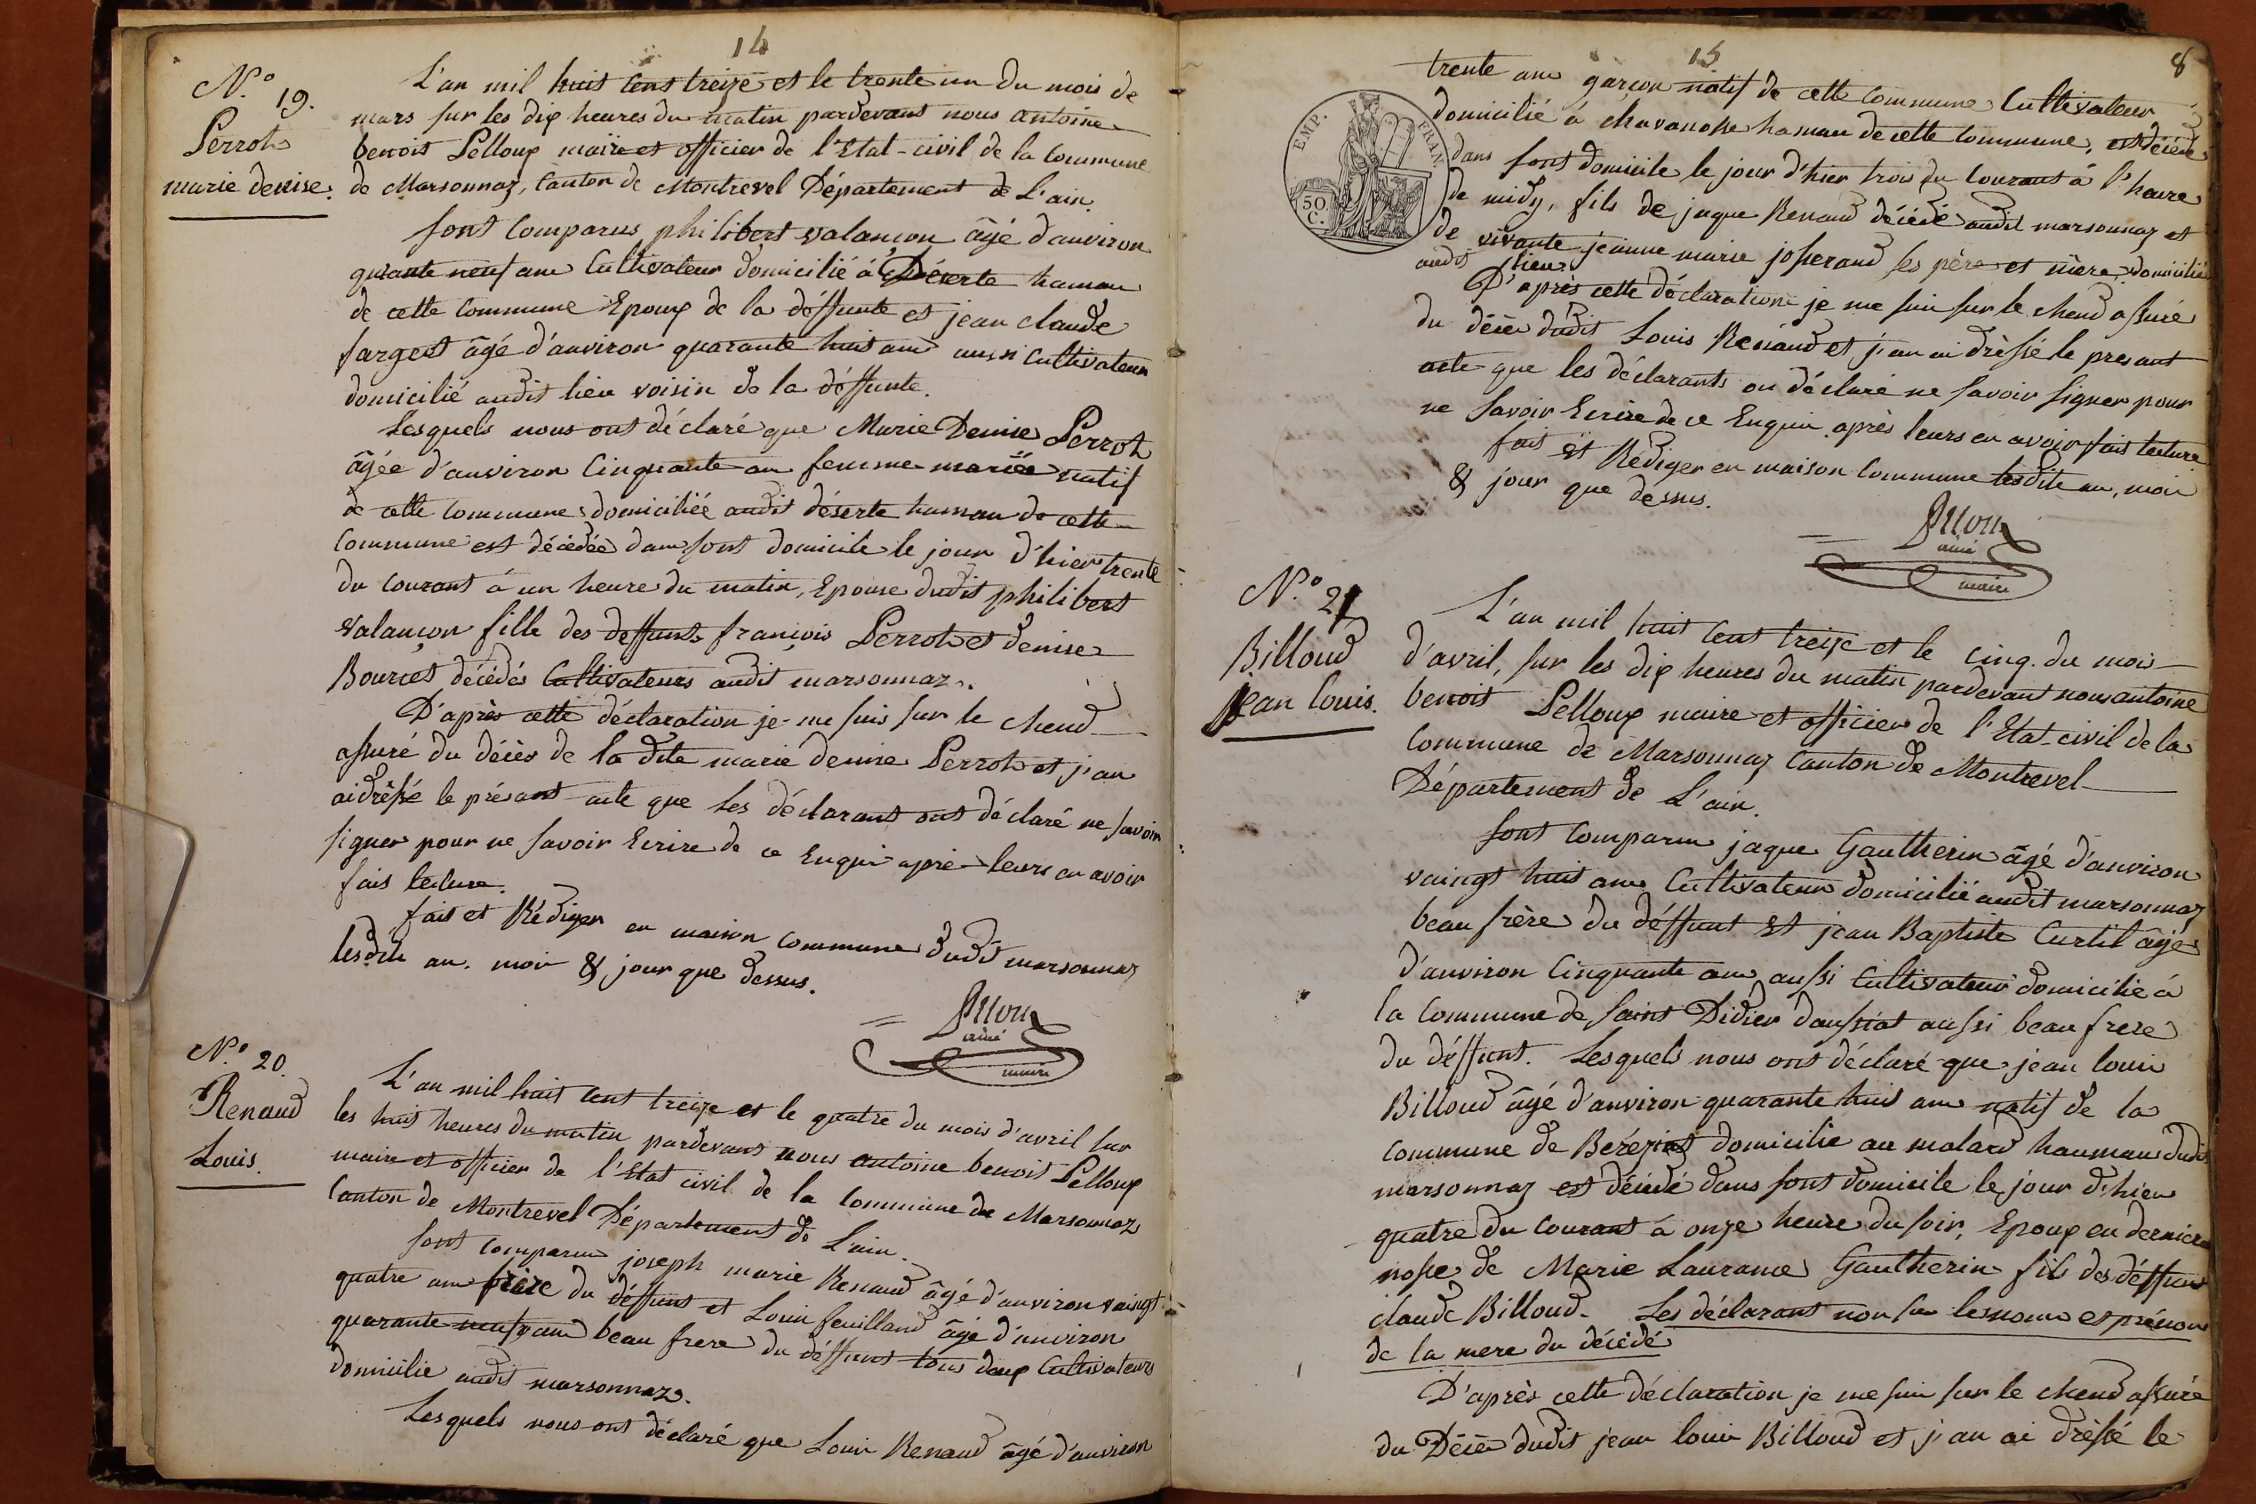 14
N.° 19.
Perrot
marie denise.
L'an mil huit cent treize et le trente un du mois de
mars sur les dix heures du matin pardevant nous antoine
benoit Pelloux maire et officier de l'Etat-civil de la Commune
de Marsonnaz, Canton de Montrevel Département de L'ain.
sont Comparus philibert valançon âgé d'anviron
quarante neuf ans Cultivateur domicilié à Déserte hamau
de cette Commune Epoux de la déffunte et jean claude
fargeot âgé d'anviron quarante huit ans aussi Cultivateur
domicilié audit lieu voisin de la déffunte.
Lesquels nous ont déclaré que Marie Denise Perrot
âgée d'anviron Cinquante an femme mariée natif
de cette Commune domiciliée audit déserte hamau de cette
Commune est décédée dans sont domicile le jour d'hier trente
du courant à un heure du matin, Epouse dudit philibert
valançon fille des deffunts françois Perrot et denise
Bourcet décédés Cultivateurs audit marsonnaz.
D'après cette déclaration je me suis sur le cheud
assuré du décès de la dite marie denise Perrot et j'an
ai drèssé le présant acte que les déclarant ont déclaré ne savoir
signer pour ne savoir Ecrire de ce Enquis après leurs en avoir
fais lecture.
fait et Rédiger en maison commune dudit marsonnaz
lesdits an. mois & jour que dessus.
Pelloux
ainé
maire
N.° 20.
Renaud
Louis.
L'an mil huit cent treize et le quatre du mois d'avril sur
les huit heures du matin pardevant nous antoine benoit Pelloux
maire et officier de l'Etat civil de la Commune de Marsonnaz
Canton de Montrevel Département de L'ain.
sont comparus joseph marie Renaud âgé d'anviron vaingt
quatre ans frère du déffunt et Louis feuilland âgé d'anviron
quarante neuf ans beau frere du déffunt tous deux Cultivateurs
domicilie audit marsonnaz.
Lesquels nous ont déclaré que Louis Renaud âgé d'anviron
15
8
EMP. FRAN.
50 C.
trente ans garçon natif de cette Commune Cultivateur
domicilié à chavanosse hamau de cette Commune, est décédé
dans sont domicile le jour d'hier trois du Courant à l'heure
de midy, fils de jaque Renaud décédé audit marsonnaz et
de vivante jeanne marie josserand ses père et mère domicilié
audit lieu.
D'après cette déclaration je me suis sur le cheud assuré
du décès dudit Louis Renaud et j'an ai drèssé le presant
acte que les déclarants on déclaré ne savoir signer pour
ne savoir Ecrire de ce Enquis après leurs en avoir fait lecture
fait et Rédiger en maison Commune lesdits an, mois
& jour que dessus.
Pelloux
ainé
maire
N.° 21
Billoud
jean louis.
L'an mil huit cent treize et le cinq du mois
d'avril, sur les dix heures du matin pardevant nous antoine
benoit Pelloux maire et officier de l'Etat-civil de la
Commune de Marsonnaz Canton de Montrevel
Département de L'ain.
sont comparus jaque Gautherin âgé d'anviron
vaingt huit ans Cultivateur domicilié audit marsonnaz
beau frère du déffunt Et jean Baptiste Curtil âgé
d'anviron Cinquante ans aussi Cultivateur domicilié à
la Commune de saint Didier daussiat aussi beau frere
du déffunt. Lesquels nous ont déclaré que jean louis
Billoud âgé d'anviron quarante huit ans natif de la
commune de Beréziat domicilie au malard haumau dudit
marsonnaz est décédé dans sont domicile le jour d'hier
quatre du Courant à onze heure du soir, Epoux en dernière
nosse de Marie Laurance Gautherin fils des déffunt
claude Billoud. Les déclarant non su les noms et prénoms
de la mere du décédé
D'après cette déclaration je me suis sur le cheud assuré
du Décès dudit jean louis Billoud et j'an ai drèssé le